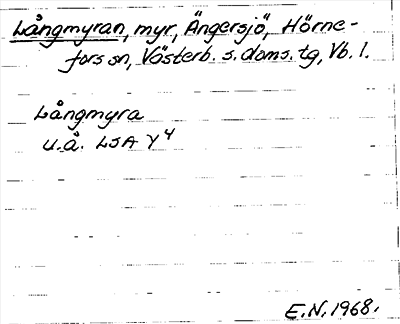 Långmyran, myr, Ängersjö, Hörne-
fors sn, Västerb. s. doms. tg, Vb. l.
Långmyra
u.å. LSA Y4
E.N. 1968.